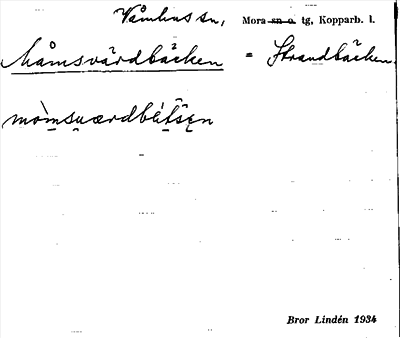 Våmhus sn, Mora sn o. tg, Kopparb. l.
Måmsvärdbäcken = Strandbäcken.
mòmsuærdbɛ́tsɛn
Bror Lindén 1934